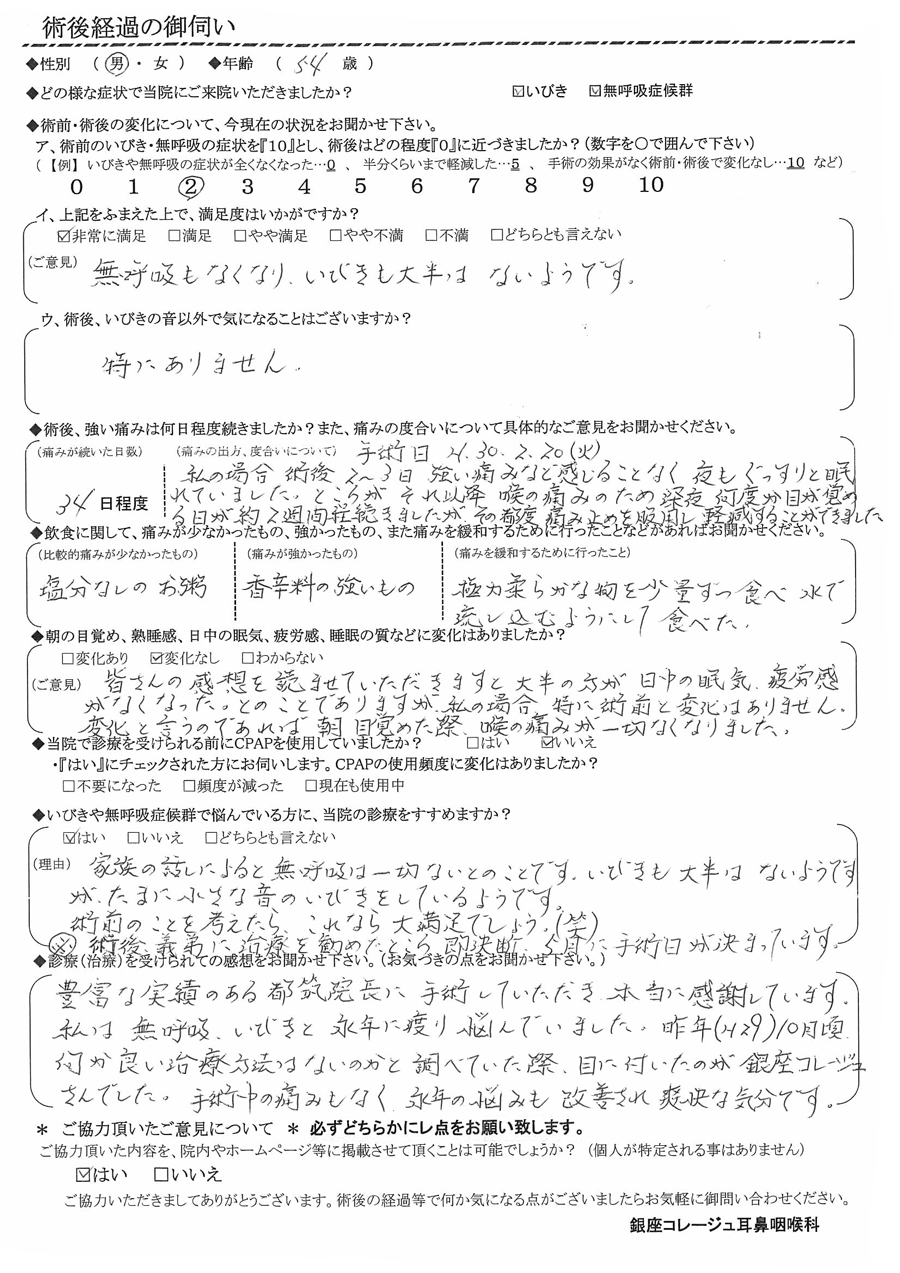 術後経過の御伺い
◆性別 ( 男 ・ 女 ) ◆年齢 ( 54 歳 )
◆どの様な症状で当院にご来院いただきましたか? ☑いびき ☑無呼吸症候群
◆術前・術後の変化について、今現在の状況をお聞かせ下さい。
ア、術前のいびき・無呼吸の症状を『10』とし、術後はどの程度『0』に近づきましたか?(数字を○で囲んで下さい)
(【例】いびきや無呼吸の症状が全くなくなった…0 、 半分くらいまで軽減した…5 、 手術の効果がなく術前・術後で変化なし…10 など)
0 1 2 3 4 5 6 7 8 9 10
イ、上記をふまえた上で、満足度はいかがですか?
☑非常に満足 □満足 □やや満足 □やや不満 □不満 □どちらとも言えない
(ご意見) 無呼吸もなくなり、いびきも大半は ないようです。
ウ、術後、いびきの音以外で気になることはございますか?
特にありません。
◆術後、強い痛みは何日程度続きましたか?また、痛みの度合いについて具体的なご意見をお聞かせください。
(痛みが続いた日数) (痛みの出方、度合いについて) 手術日 H.30.2.20(火)
私の場合 術後 2〜3日 強い痛みなど感じることなく 夜もぐっすりと眠
34 日程度 れていました。ところが それ以降 喉の痛みのため 深夜 何度か目が覚め
る日が約2週間程続きましたが その都度 痛み止めを服用し 軽減することができました
◆飲食に関して、痛みが少なかったもの、強かったもの、また痛みを緩和するために行ったことなどがあればお聞かせください。
(比較的痛みが少なかったもの) (痛みが強かったもの) (痛みを緩和するために行ったこと)
塩分なしの お粥 香辛料の強いもの 極力柔らかな物を少量ずつ食べ 水で
流し込むようにして 食べた。
◆朝の目覚め、熟睡感、日中の眠気、疲労感、睡眠の質などに変化はありましたか?
□変化あり ☑変化なし □わからない
(ご意見) 皆さんの感想を読ませていただきますと 大半の方が 日中の眠気、疲労感
がなくなった。とのことでありますが、私の場合、特に術前と変化はありません。
変化と言うのであれば 朝 目覚めた際、喉の痛みが一切なくなりました。
◆当院で診療を受けられる前にCPAPを使用していましたか? □はい ☑いいえ
・『はい』にチェックされた方にお伺いします。CPAPの使用頻度に変化はありましたか?
□不要になった □頻度が減った □現在も使用中
◆いびきや無呼吸症候群で悩んでいる方に、当院の診療をすすめますか?
☑はい □いいえ □どちらとも言えない
(理由) 家族の話しによると 無呼吸は一切ないとのことです。いびきも 大半は ないようです
が、たまに 小さな音の いびきをしているようです。
術前のことを考えたら、これなら 大満足でしょう。(笑)
※ 術後、義弟に治療を勧めたところ 即決断、5月に手術日が決まっています。
◆診療(治療)を受けられての感想をお聞かせ下さい。(お気づきの点をお聞かせ下さい。)
豊富な実績のある 都筑院長に 手術していただき 本当に感謝しています。
私は 無呼吸、いびきと 永年に渡り 悩んでいました。昨年(H29)10月頃
何か良い治療方法はないのかと 調べていた際、目に付いたのが 銀座コレージュ
さんでした。 手術中の痛みもなく 永年の悩みも 改善され 爽快な気分です。
＊ ご協力頂いたご意見について ＊ 必ずどちらかにレ点をお願い致します。
ご協力頂いた内容を、院内やホームページ等に掲載させて頂くことは可能でしょうか? (個人が特定される事はありません)
☑はい □いいえ
ご協力いただきましてありがとうございます。術後の経過等で何か気になる点がございましたらお気軽に御問い合わせください。
銀座コレージュ耳鼻咽喉科